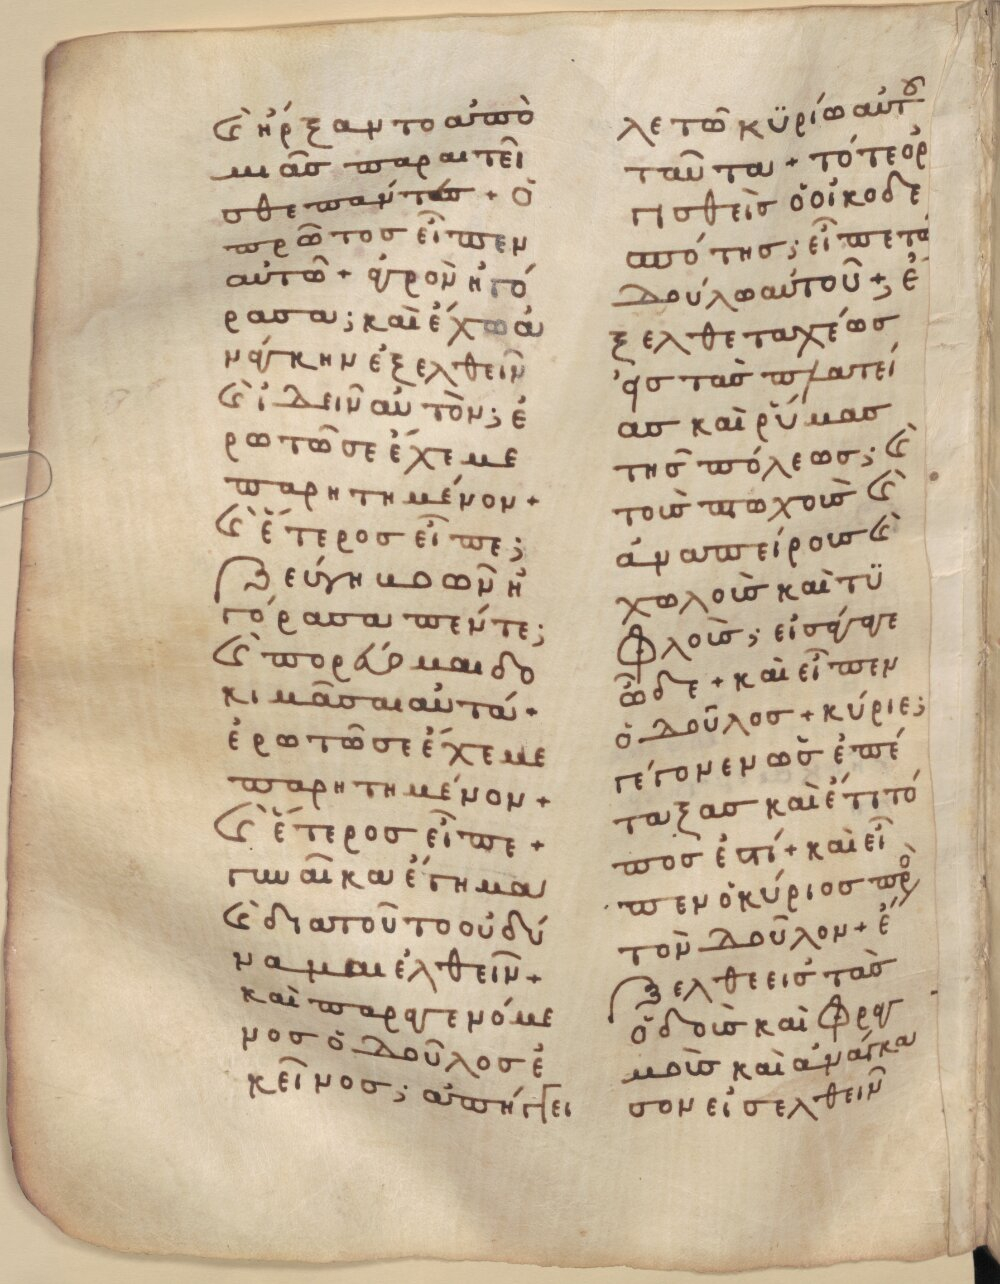 Καὶ ἤρξαντο ἀπὸ
μιᾶσ παραιτεῖ
σθε παντεσ + ὁ
πρῶτοσ εἶπεν
αὐτῶ + ἀγρὸν ἠγό
ρασα; καὶ ἔχω ἀ
νάγκην ἐξελθεῖν
καὶ ἰδεῖν αὐτὸν; ἐ
ρωτῶ σε ἔχε με
παρητημένον +
καὶ ἕτεροσ εἶπε;
Ζεύγη βοῶν ἠ
γόρασα πέντε;
καὶ πορεύομαι δο
κιμᾶσαι αὐτά +
ἐρωτῶ σε ἔχε με
παρητημένον +
καὶ ἕτεροσ εἶπε +
γυναῖκα ἔγημα
καὶ διατοῦτο οὐ δύ
ναμαι ἐλθεῖν +
καὶ παραγενόμε
νοσ ὁ δοῦλοσ ἐ
κεῖνοσ; ἀπήγγει
λε τῶ κϋρίω αὐτου
ταῦτα + τότε ὀρ
γισθεὶσ ὁ οἰκοδε
σπότησ; εἶπε τῶ
δούλω αὐτοῦ +; ἔ
ξελθε ταχέωσ
εἰσ τὰσ πλατεί
ασ καὶ ρύμασ
τῆσ πόλεωσ; καὶ
τοὺσ πτωχοὺσ καὶ
ἀναπείρουσ καὶ
χωλοὺσ καὶ τϋ
Φλοὺσ; εἰσάγαγε
ὧδε + καὶ εἶπεν
ὁ δοῦλοσ + κύριε;
γέγονεν ὡσ ἐπέ
ταξασ καὶ ἔτι τό
ποσ ἐστί + καὶ εἶ
πεν ὁ κύριοσ πρὸ
τὸν δοῦλον + ἔ
ξελθε εισ τὰσ
ὁδοὺσ καὶ Φραγ
μοὺσ καὶ ἀνάγκα
σον εἰσελθεῖν